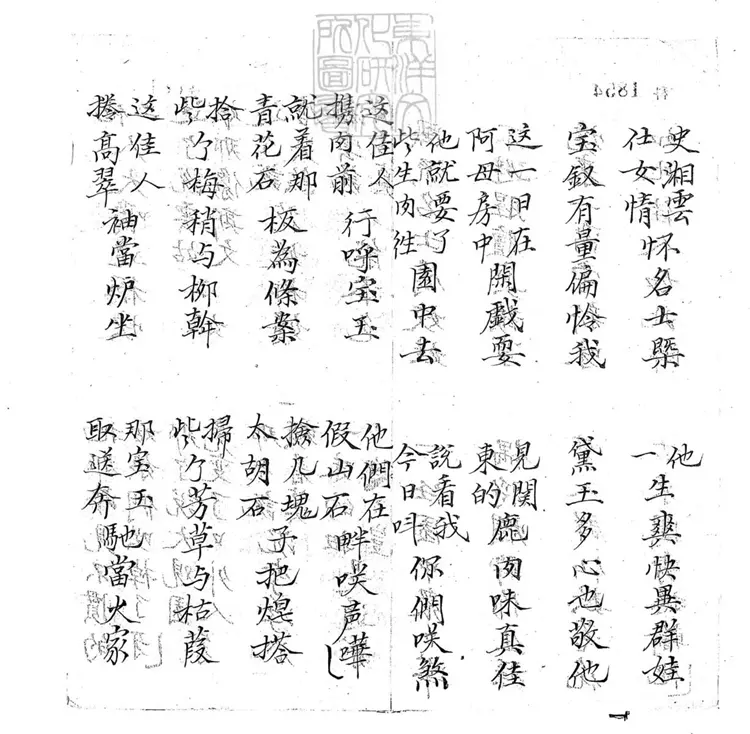 史湘雲仕女情怀名士槩
他一生爽快異群娃
宝釵有量偏怜我
黛玉多心也敬他
这一日在阿母房中閑戲耍
見関東的鹿肉味真佳
他就要了些生肉往園中去
說看我今日吽你們咲煞
这佳人携肉前行呼宝玉
他們在假山石畔咲声嘩
就着那青花石板為條案
搶几塊太胡石子把煋搭
拾些个梅稍与柳幹
掃些个芳草与枯葭
这佳人捲高翠袖當炉坐
那宝玉取送奔馳當火家